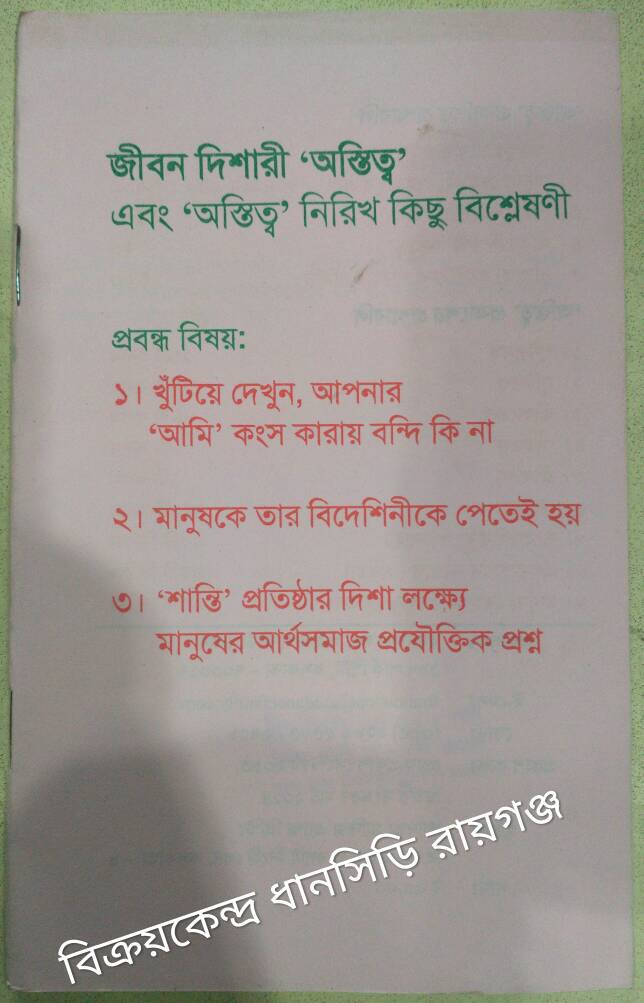 জীবন দিশারী ‘অস্তিত্ব’
এবং ‘অস্তিত্ব’ নিরিখ কিছু বিশ্লেষণী
প্রবন্ধ বিষয়:
১। খুঁটিয়ে দেখুন, আপনার
‘আমি’ কংস কারায় বন্দি কি না
২। মানুষকে তার বিদেশিনীকে পেতেই হয়
৩। ‘শান্তি’ প্রতিষ্ঠার দিশা লক্ষ্যে
মানুষের আর্থসমাজ প্রযৌক্তিক প্রশ্ন
বিক্রয়কেন্দ্র ধানসিড়ি রায়গঞ্জ